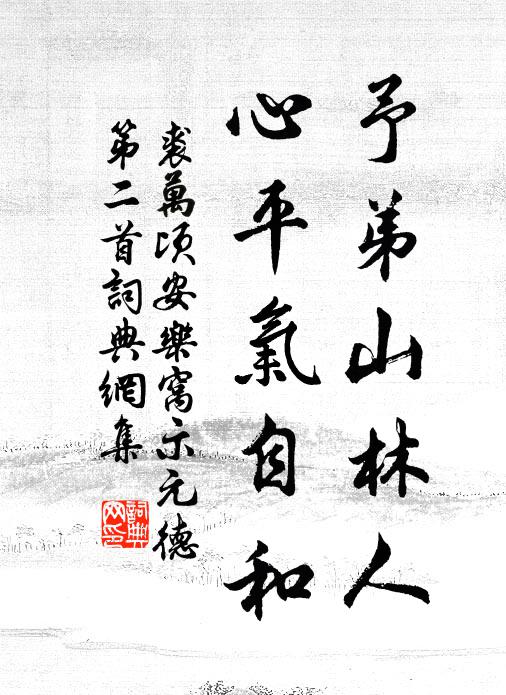 予弟山林人
心平氣自和
裘萬頃安樂窩示元德
第二首詞典網集
詞典
网印